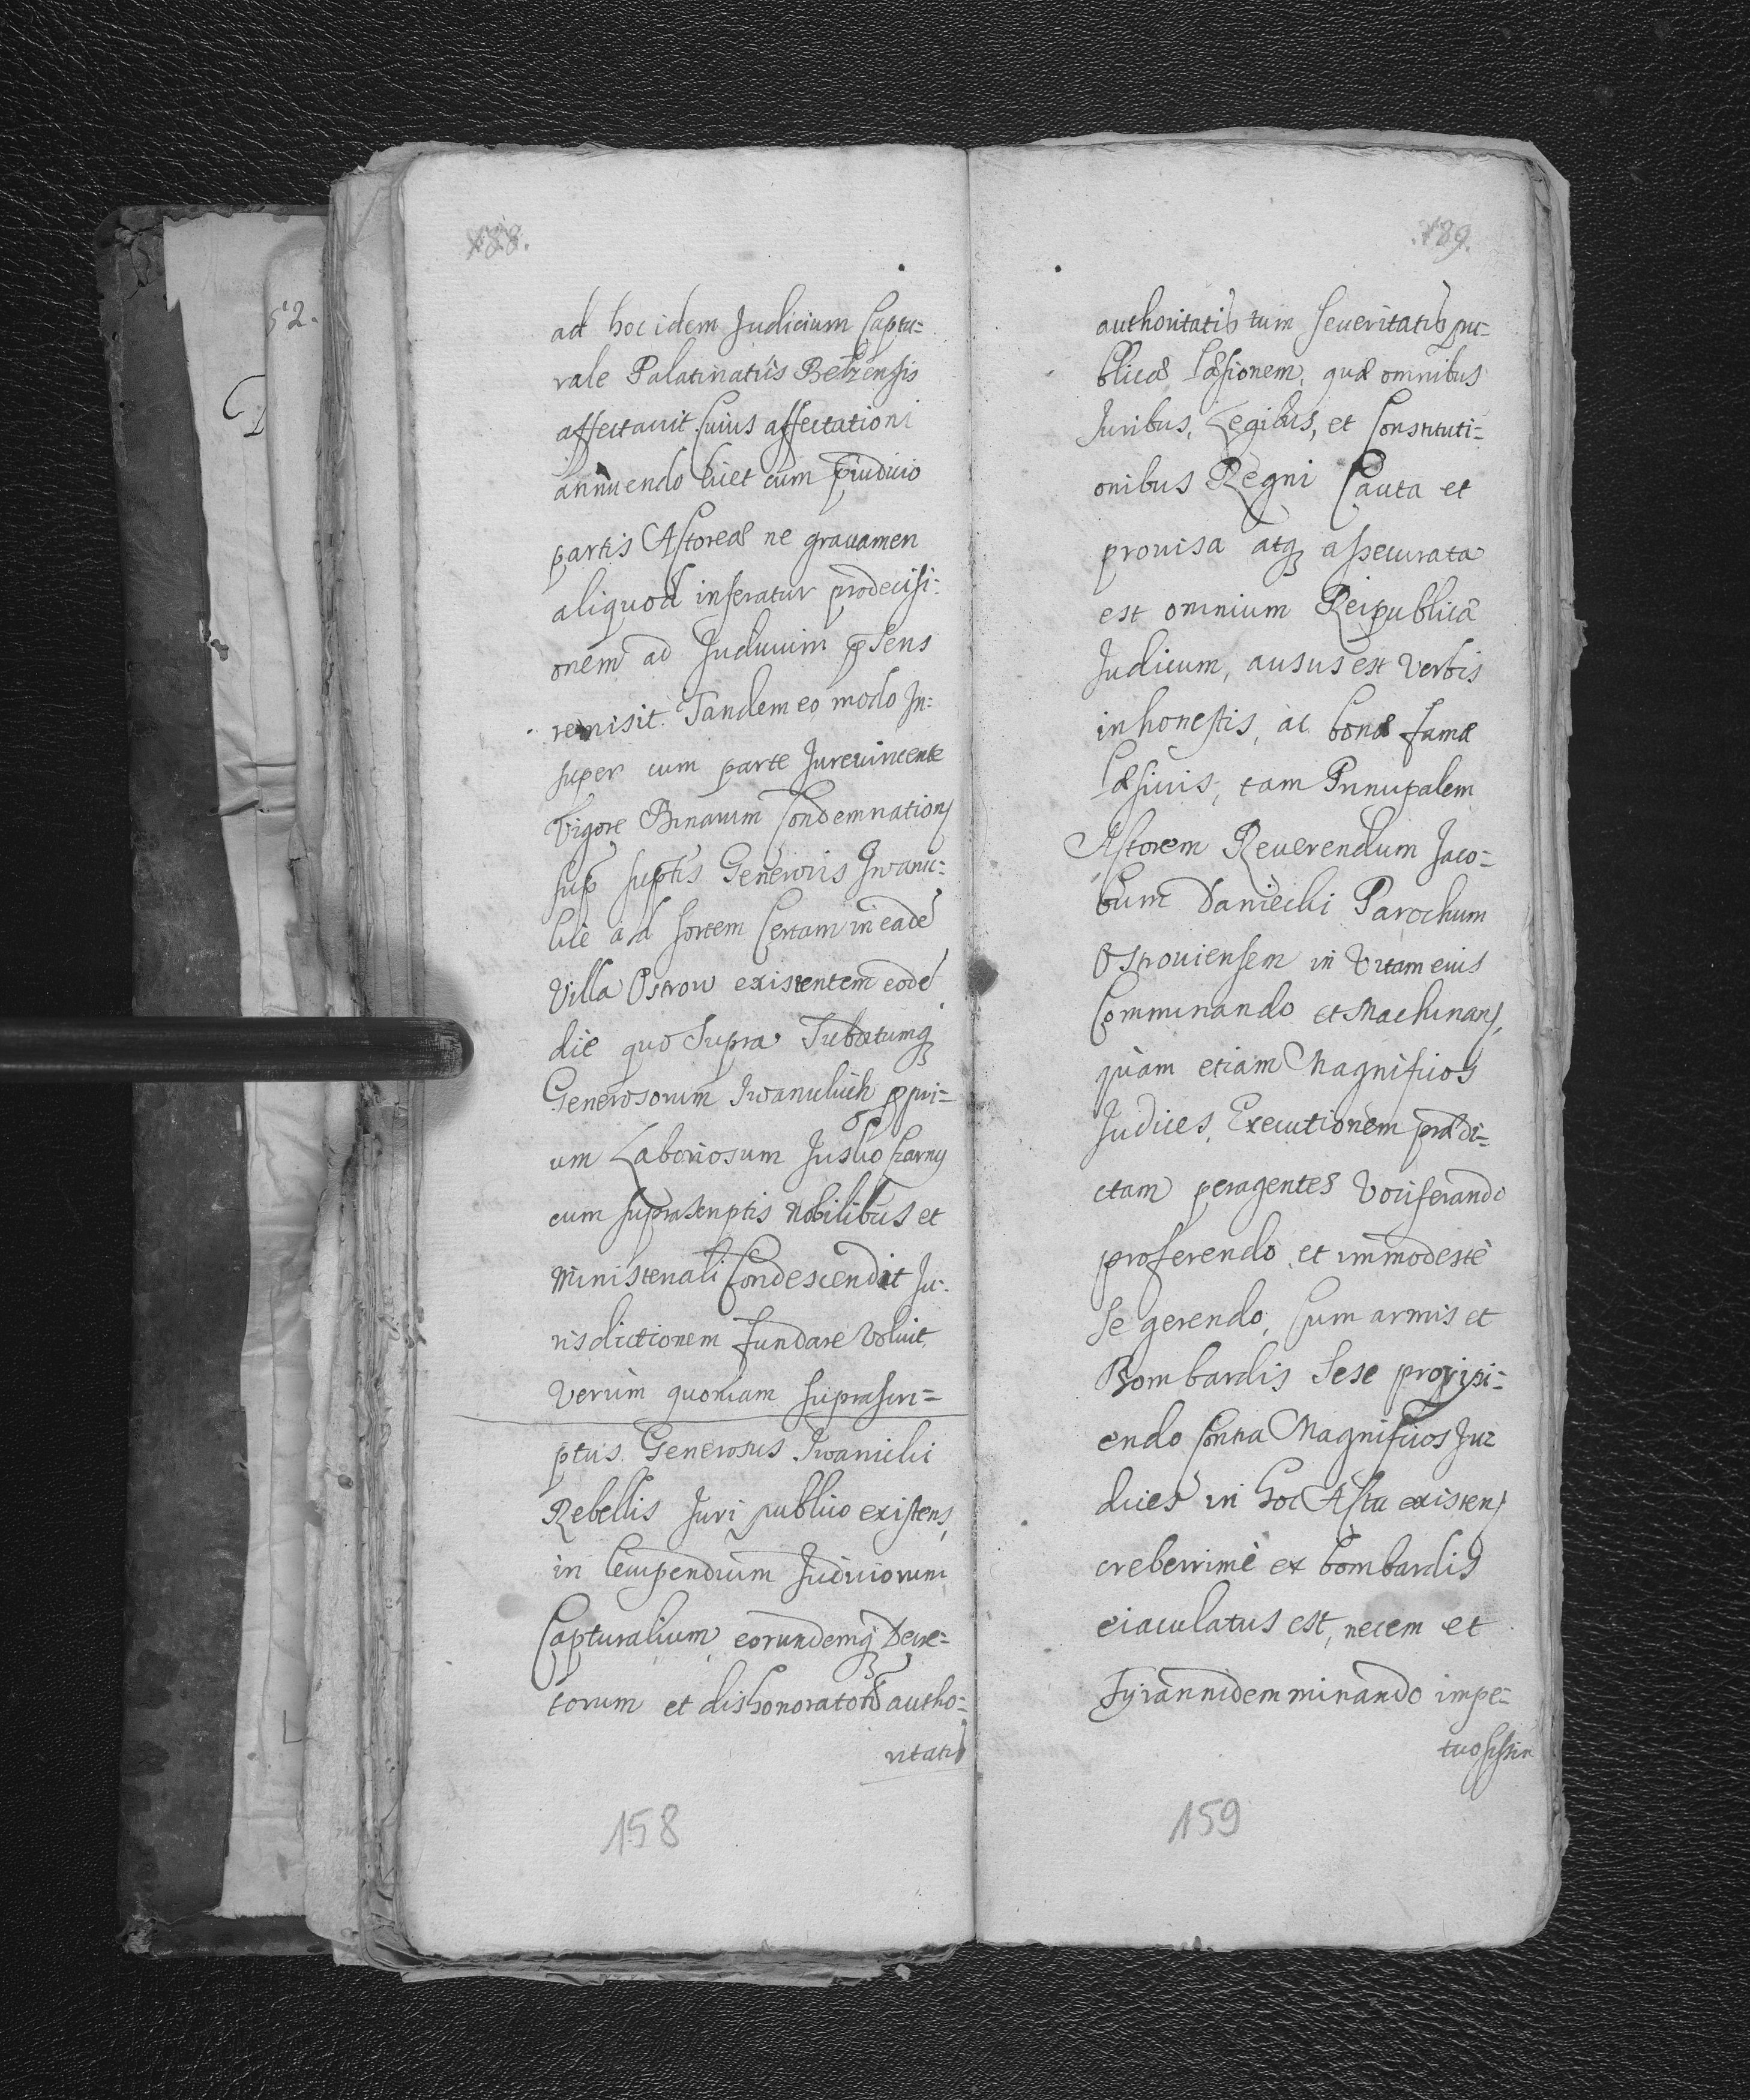 188.
ad hoc idem Judicium Captu=
rale Palatinatûs Belzensis
affectavit. Cuius affectationi
annuendo licet cum pjudicio
partis Actoreæ ne gravamen
aliquod inferatur pro decisi=
onem ad Judicium psens
remisit. Tandem eo modo In=
super cum parte Jurevincente
Vigore Binarum Condemnationũ
sup suptis Generosis Iwanic=
kie ad sortem Certam in eadẽ
Villa Ostrow existentem eodẽ
die quo supra Subditumq
Generosorum Iwanickich ppri=
um Laboriosum Jusko Czarny
cum suprascriptis Nobilibus et
Ministeriali Condescendit Ju=
risdictionem fundare Voluit.
Verùm quoniam suprascri=
ptus Generosus Iwanicki
Rebellis Juri publico existens,
in Centupendium Judiciorum
Capturalium eorundemq Decre=
torum et dishonorationẽ autho=
ritatis
158
189.
authoritatis tum severitatis pu=
blicæ læsionem, quæ omnibus
Juribus, Legibus, et Constituti=
onibus Regni Cauta et
provisa atq assecurata
est omnium Reipublicæ
Judicum, ausus est Verbis
inhonestis, ac bonæ famæ
læsivis, tam Principalem
Actorem Reverendum Jaco=
bum Daniecki Parochum
Ostroviensem in Vitam eius
Comminando et Machinanȷ,
quàm etiam Magnificos
Judices, Executionem prædi=
ctam peragentes Vociferando
proferendo et immodestè
se gerendo, Cum armis et
Bombardis sese proripi=
endo Contra Magnificos Ju=
dices in hoc Actu existenȷ
creberrimè ex bombardis
eiaculatus est, necem et
Tyrannidem minando impe=
tuosissim
159
52.